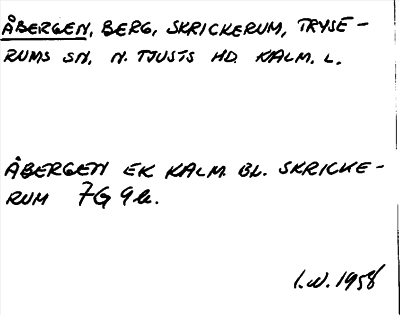 ÅBERGEN, BERG, SKRICKERUM, TRYSE-
RUMS SN. N. TJUSTS HD. KALM. L.
ÅBERGEN EK KALM BL. SKRICKE-
RUM 7G 9b.
I.W. 1958